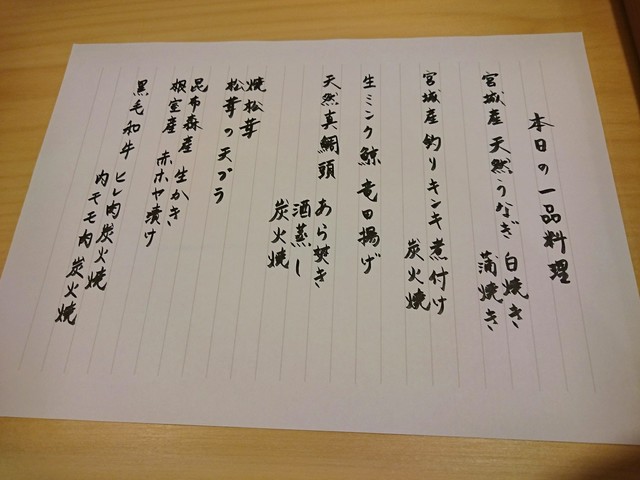 本日の一品料理
宮城産 天然うなぎ 白焼き
蒲焼き
宮城産 釣りキンキ 煮付け
炭火焼
生ミンク鯨 竜田揚げ
天然真鯛頭 あら焚き
酒蒸し
炭火焼
焼松茸
松茸の天プラ
昆布森産 生かき
根室産 赤ホヤ漬け
黒毛和牛 ヒレ肉炭火焼
内モモ肉 炭火焼